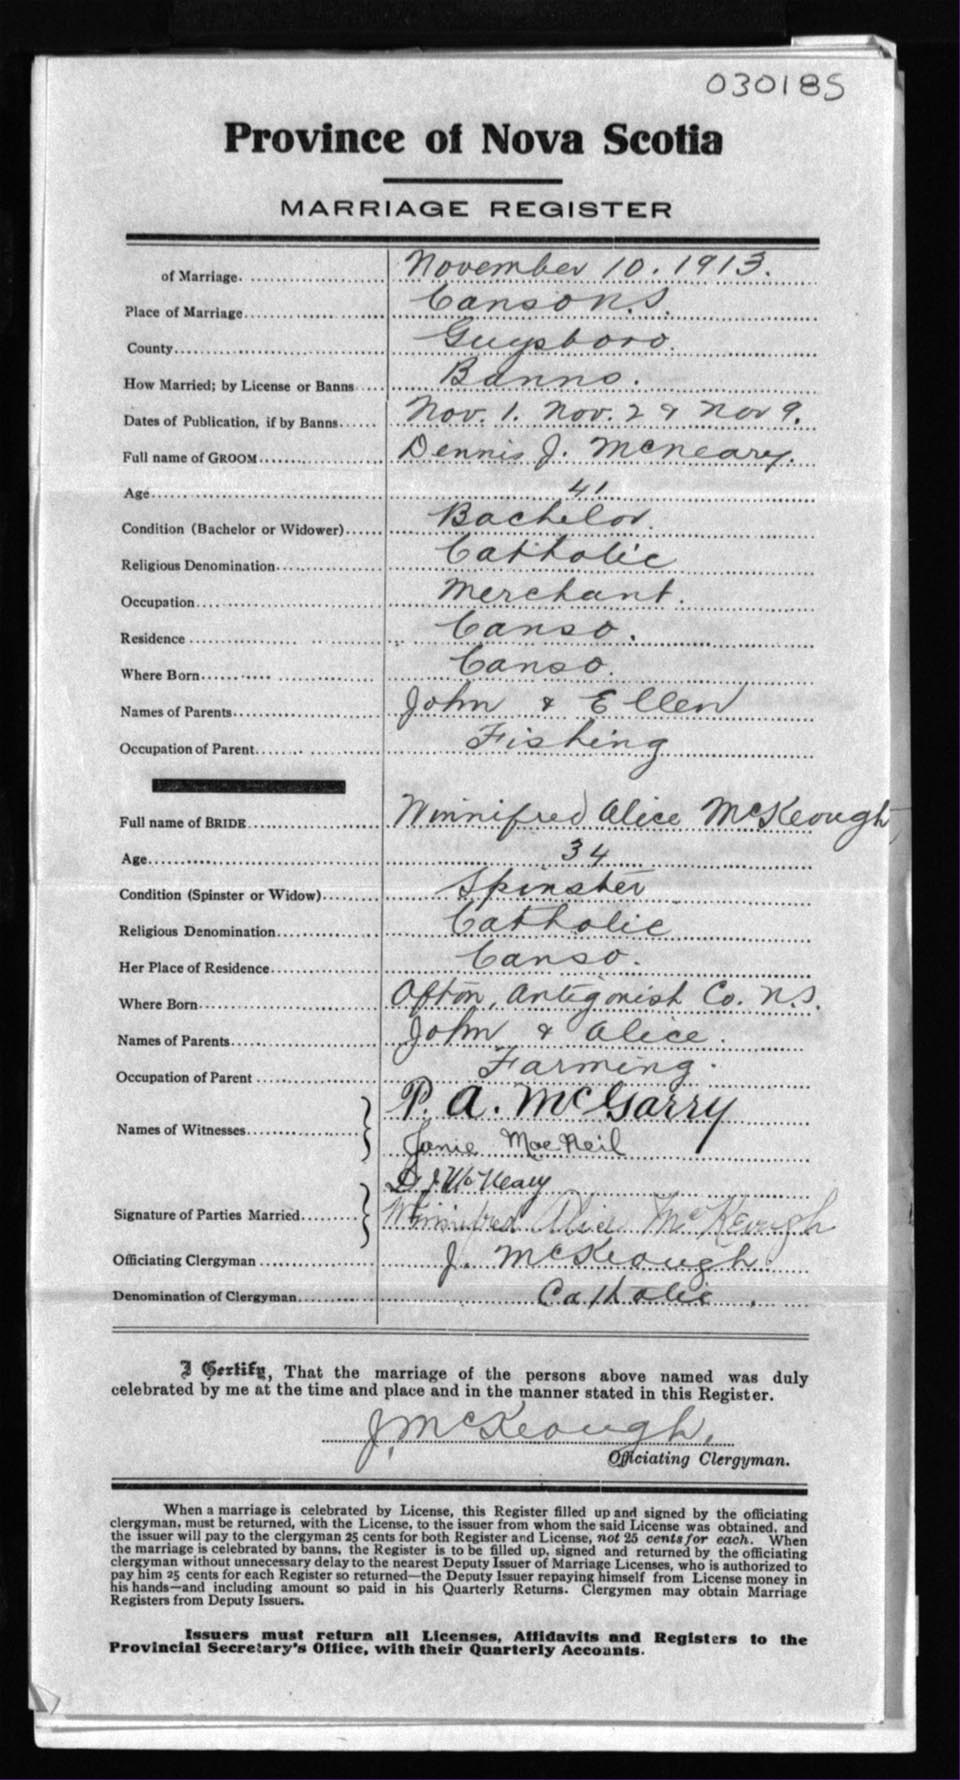 030185
Province of Nova Scotia
MARRIAGE REGISTER
of Marriage November 10. 1913.
Place of Marriage Canso N.S.
County Guysboro.
How Married; by License or Banns Banns.
Dates of Publication, if by Banns Nov. 1. Nov. 2 & Nov 9.
Full name of GROOM Dennis J. McNeary.
Age 41
Condition (Bachelor or Widower) Bachelor.
Religious Denomination Catholic
Occupation Merchant.
Residence Canso.
Where Born Canso.
Names of Parents John & Ellen
Occupation of Parent Fishing
Full name of BRIDE Winnifred Alice McKeough
Age 34
Condition (Spinster or Widow) Spinster
Religious Denomination Catholic
Her Place of Residence Canso.
Where Born Afton, Antigonish Co. N.S.
Names of Parents John & Alice.
Occupation of Parent Farming.
P. A. McGarry
Names of Witnesses
Janie MacNeil
D. J. McNeary
Signature of Parties Married Winnifred Alice McKeough
Officiating Clergyman J. McKeough
Denomination of Clergyman Catholic.
I Certify, That the marriage of the persons above named was duly
celebrated by me at the time and place and in the manner stated in this Register.
J. McKeough.
Officiating Clergyman.
When a marriage is celebrated by License, this Register filled up and signed by the officiating
clergyman, must be returned, with the License, to the issuer from whom the said License was obtained, and
the issuer will pay to the clergyman 25 cents for both Register and License, not 25 cents for each. When
the marriage is celebrated by banns, the Register is to be filled up, signed and returned by the officiating
clergyman without unnecessary delay to the nearest Deputy Issuer of Marriage Licenses, who is authorized to
pay him 25 cents for each Register so returned—the Deputy Issuer repaying himself from License money in
his hands—and including amount so paid in his Quarterly Returns. Clergymen may obtain Marriage
Registers from Deputy Issuers.
Issuers must return all Licenses, Affidavits and Registers to the
Provincial Secretary's Office, with their Quarterly Accounts.